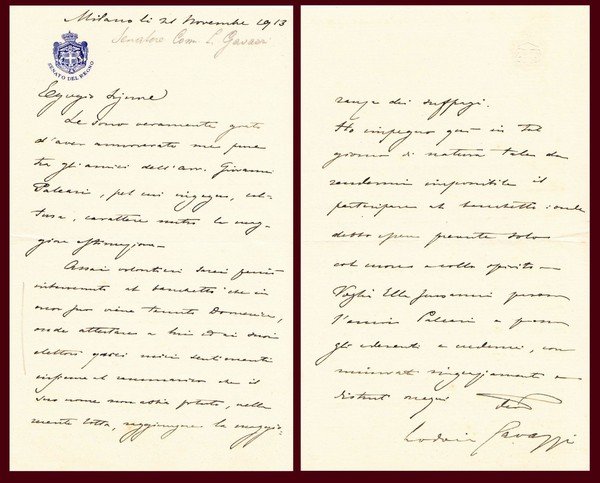 Milano li 21 Novembre 1913
Senatore Com. L. Gavazzi
SENATO DEL REGNO
Egregio Signore
Le sono veramente grato
d'aver annoverato me pure
tra gli amici dell'avv. Giovanni
Paleari, pel cui ingegno, col-
tura, carattere nutro la mag-
giore estimazione.
Assai volontieri sarei
intervenuto al banchetto che in
onor suo viene tenuto Domenica,
onde attestare a lui ed ai suoi
elettori questi miei sentimenti
insieme al rammarico che il
suo nome non abbia potuto, nella
recente lotta, raggiungere la maggio-
ranza dei suffragi.
Ho impegno però in tal
giorno di natura tale da
rendermi impossibile il
partecipare al banchetto: onde
debbo essere presente solo
col cuore e collo spirito.
Voglia Ella
l'amico Paleari e
gli aderenti e credermi, con
rinnovati ringraziamenti e
distinti ossequi
Lodovico Gavazzi